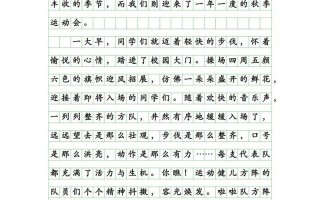 丰收的季节，而我们则迎来了一年一度的秋季
运动会。
一大早，同学们就迈着轻快的步伐，怀着
愉悦的心情，踏进了校园大门。操场四周五颜
六色的旗帜迎风招展，仿佛一朵朵盛开的鲜花，
迎接着即将入场的同学们。随着欢快的音乐声，
一列列整齐的方队，井然有序地缓缓入场了，
远远望去是那么壮观，步伐是那么整齐，口号
是那么洪亮，动作是那么有力……每支代表队
都充满了活力与生机。你瞧！运动健儿方阵的
队员们个个精神抖擞，容光焕发。啦啦队方阵